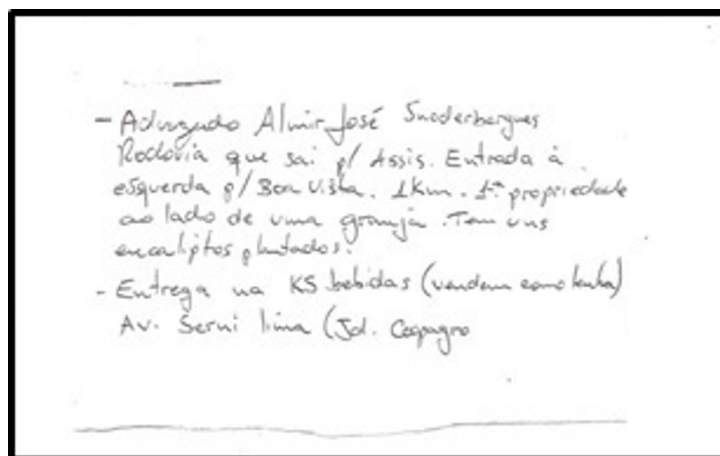 - Advogado Almir José Snoderbergues
Rodovia que sai p/ Assis. Entrada à
esquerda p/ Boa Vista. 1Km. 1ª propriedade
ao lado de uma granja. Tem uns
eucaliptos plantados.
- Entrega na KS bebidas (vendem como lenha)
Av. Serni lima (Jd. Copagro